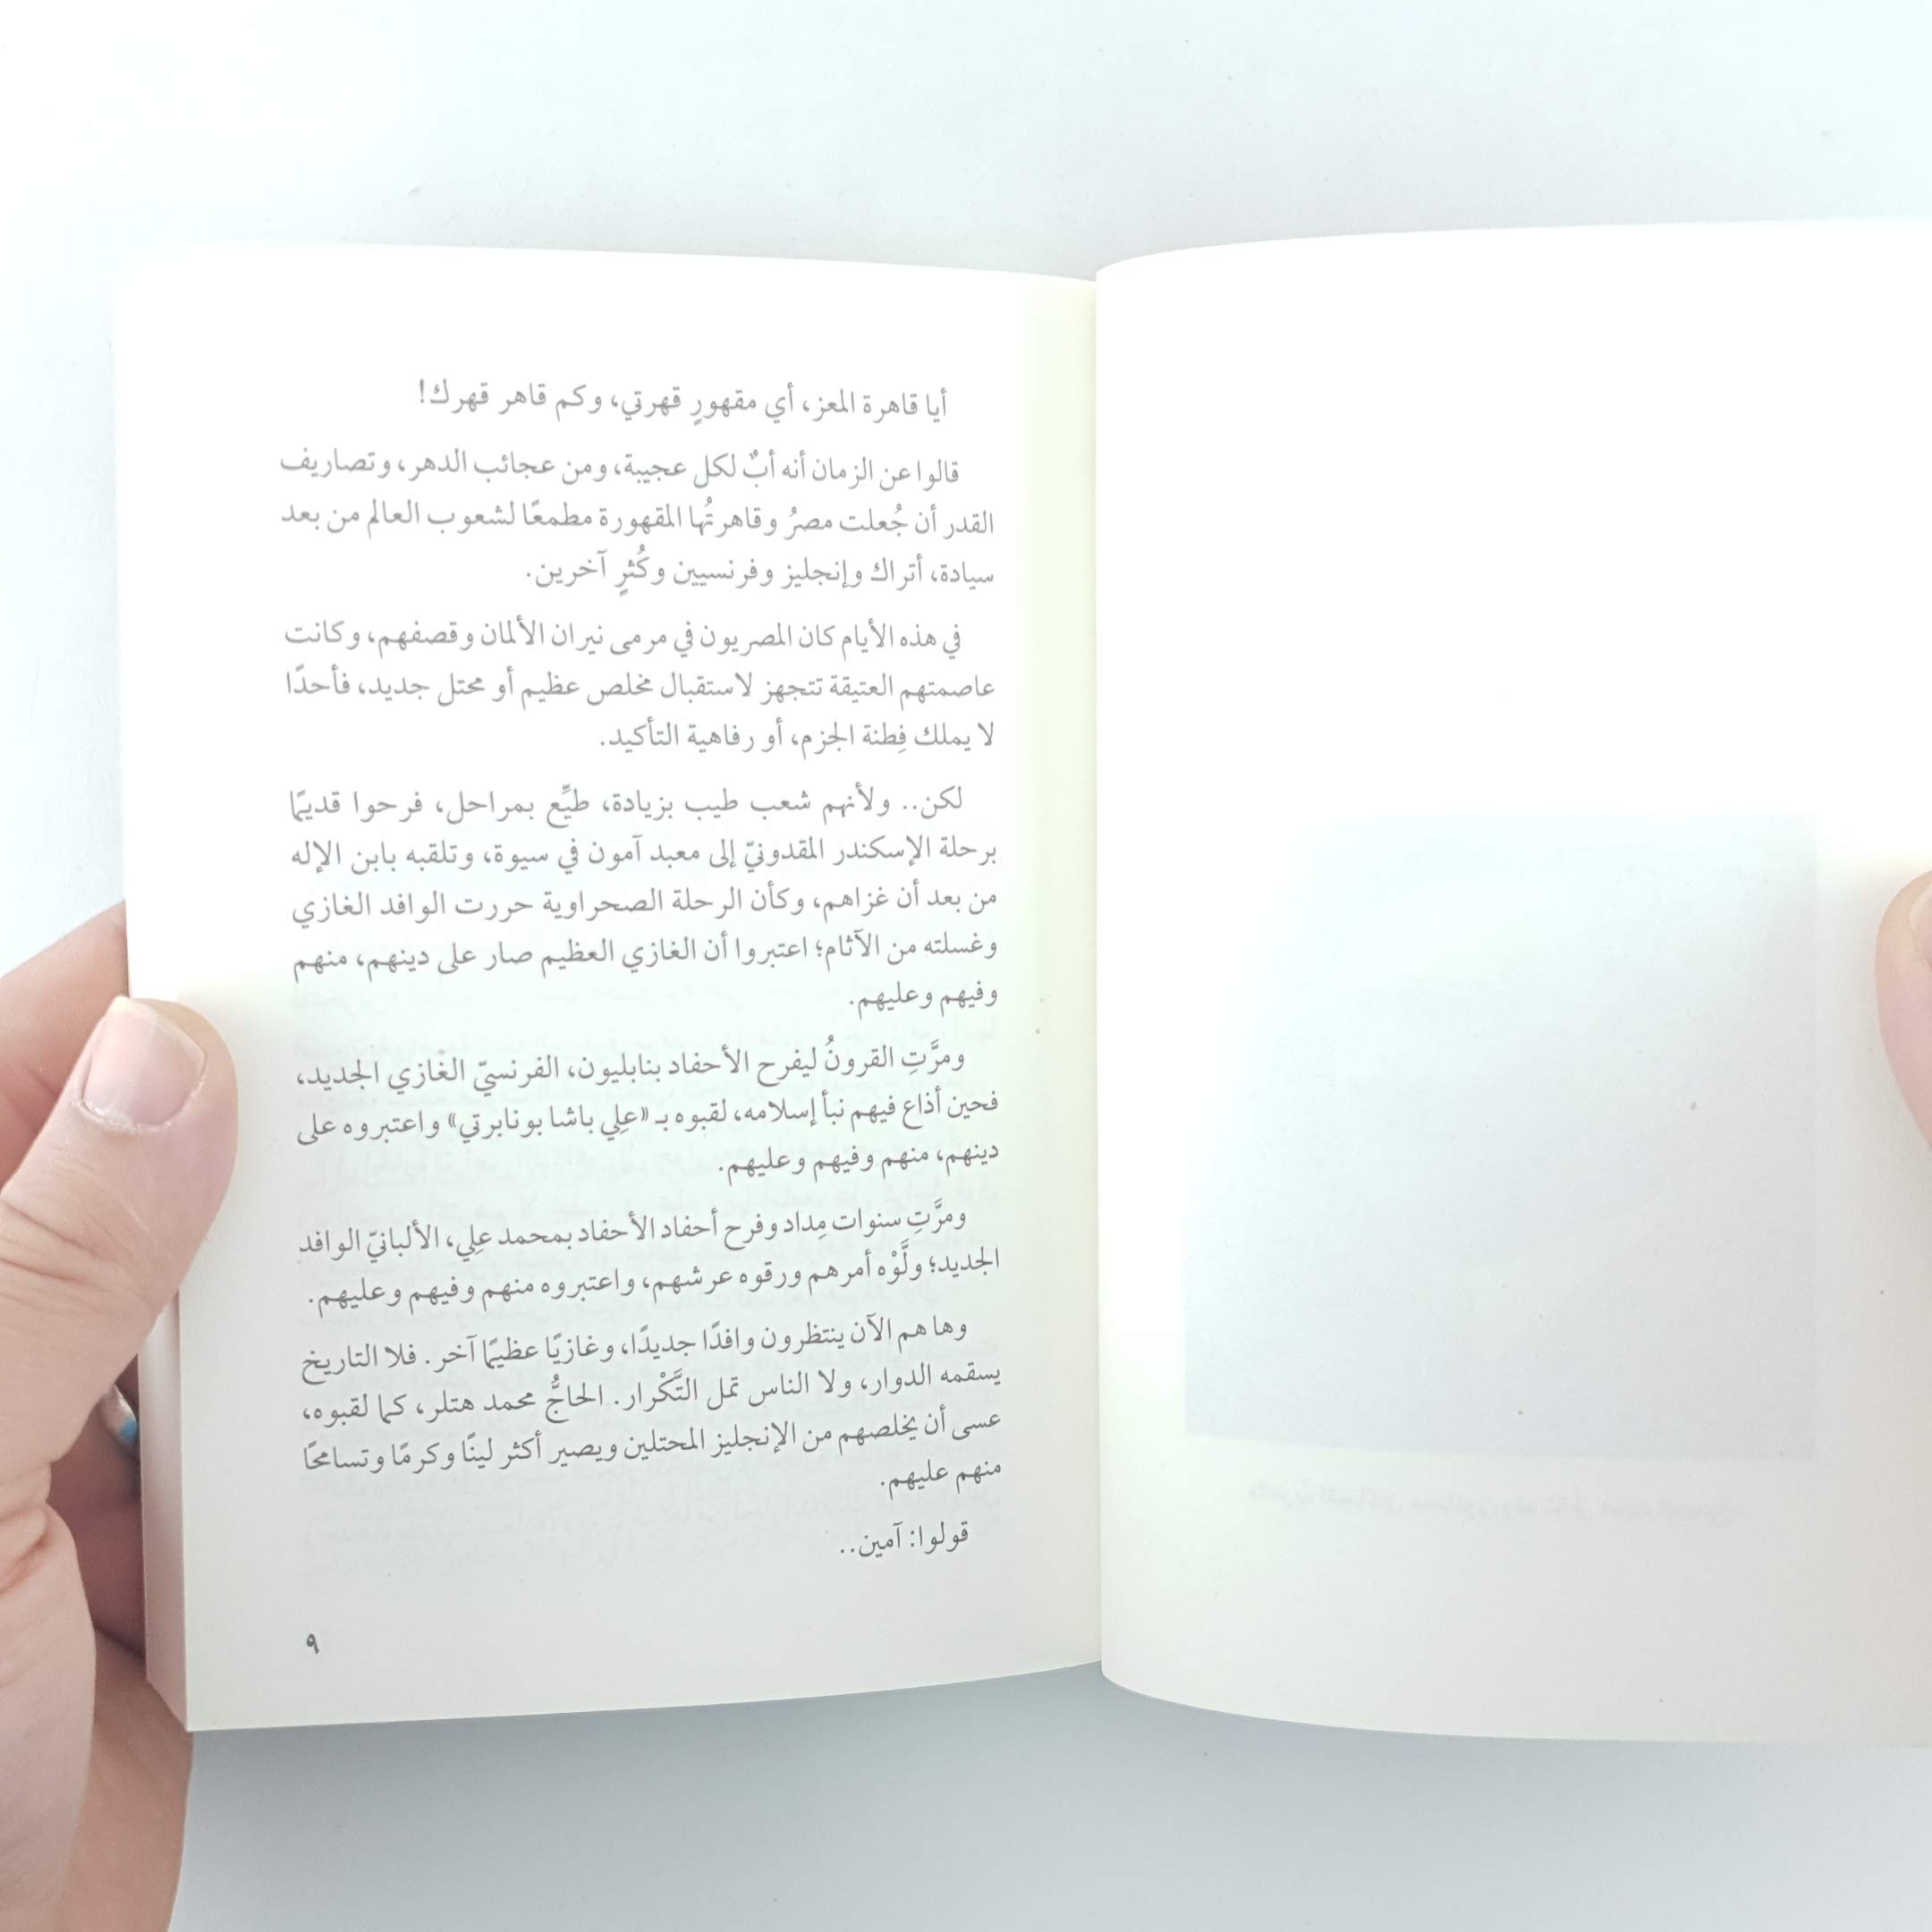 أيا قاهرة المعز، أي مقهورٍ قهرتي، وكم قاهر قهرك!
قالوا عن الزمان أنه أبٌ لكل عجيبة، ومن عجائب الدهر، وتصاريف
القدر أن جُعلت مصرُ وقاهرتُها المقهورة مطمعًا لشعوب العالم من بعد
سيادة، أتراك وإنجليز وفرنسيين وكُثرٍ آخرين.
في هذه الأيام كان المصريون في مرمى نيران الألمان وقصفهم، وكانت
عاصمتهم العتيقة تتجهز لاستقبال مخلص عظيم أو محتل جديد، فأحدًا
لا يملك فِطنة الجزم، أو رفاهية التأكيد.
لكن.. ولأنهم شعب طيب بزيادة، طيِّع بمراحل، فرحوا قديمًا
برحلة الإسكندر المقدونيّ إلى معبد آمون في سيوة، وتلقبه بابن الإله
من بعد أن غزاهم، وكأن الرحلة الصحراوية حررت الوافد الغازي
وغسلته من الآثام؛ اعتبروا أن الغازي العظيم صار على دينهم، منهم
وفيهم وعليهم.
ومرَّتِ القرونُ ليفرح الأحفاد بنابليون، الفرنسيّ الغازي الجديد،
فحين أذاع فيهم نبأ إسلامه، لقبوه بـ «علِي باشا بونابرتي» واعتبروه على
دينهم، منهم وفيهم وعليهم.
ومرَّتِ سنوات مِداد وفرح أحفاد الأحفاد بمحمد علِي، الألبانيّ الوافد
الجديد؛ ولَّوْه أمرهم ورقوه عرشهم، واعتبروه منهم وفيهم وعليهم.
وها هم الآن ينتظرون وافدًا جديدًا، وغازيًا عظيمًا آخر. فلا التاريخ
يسقمه الدوار، ولا الناس تمل التَّكْرار. الحاجُّ محمد هتلر، كما لقبوه،
عسى أن يخلصهم من الإنجليز المحتلين ويصير أكثر لينًا وكرمًا وتسامحًا
منهم عليهم.
قولوا: آمين..
٩